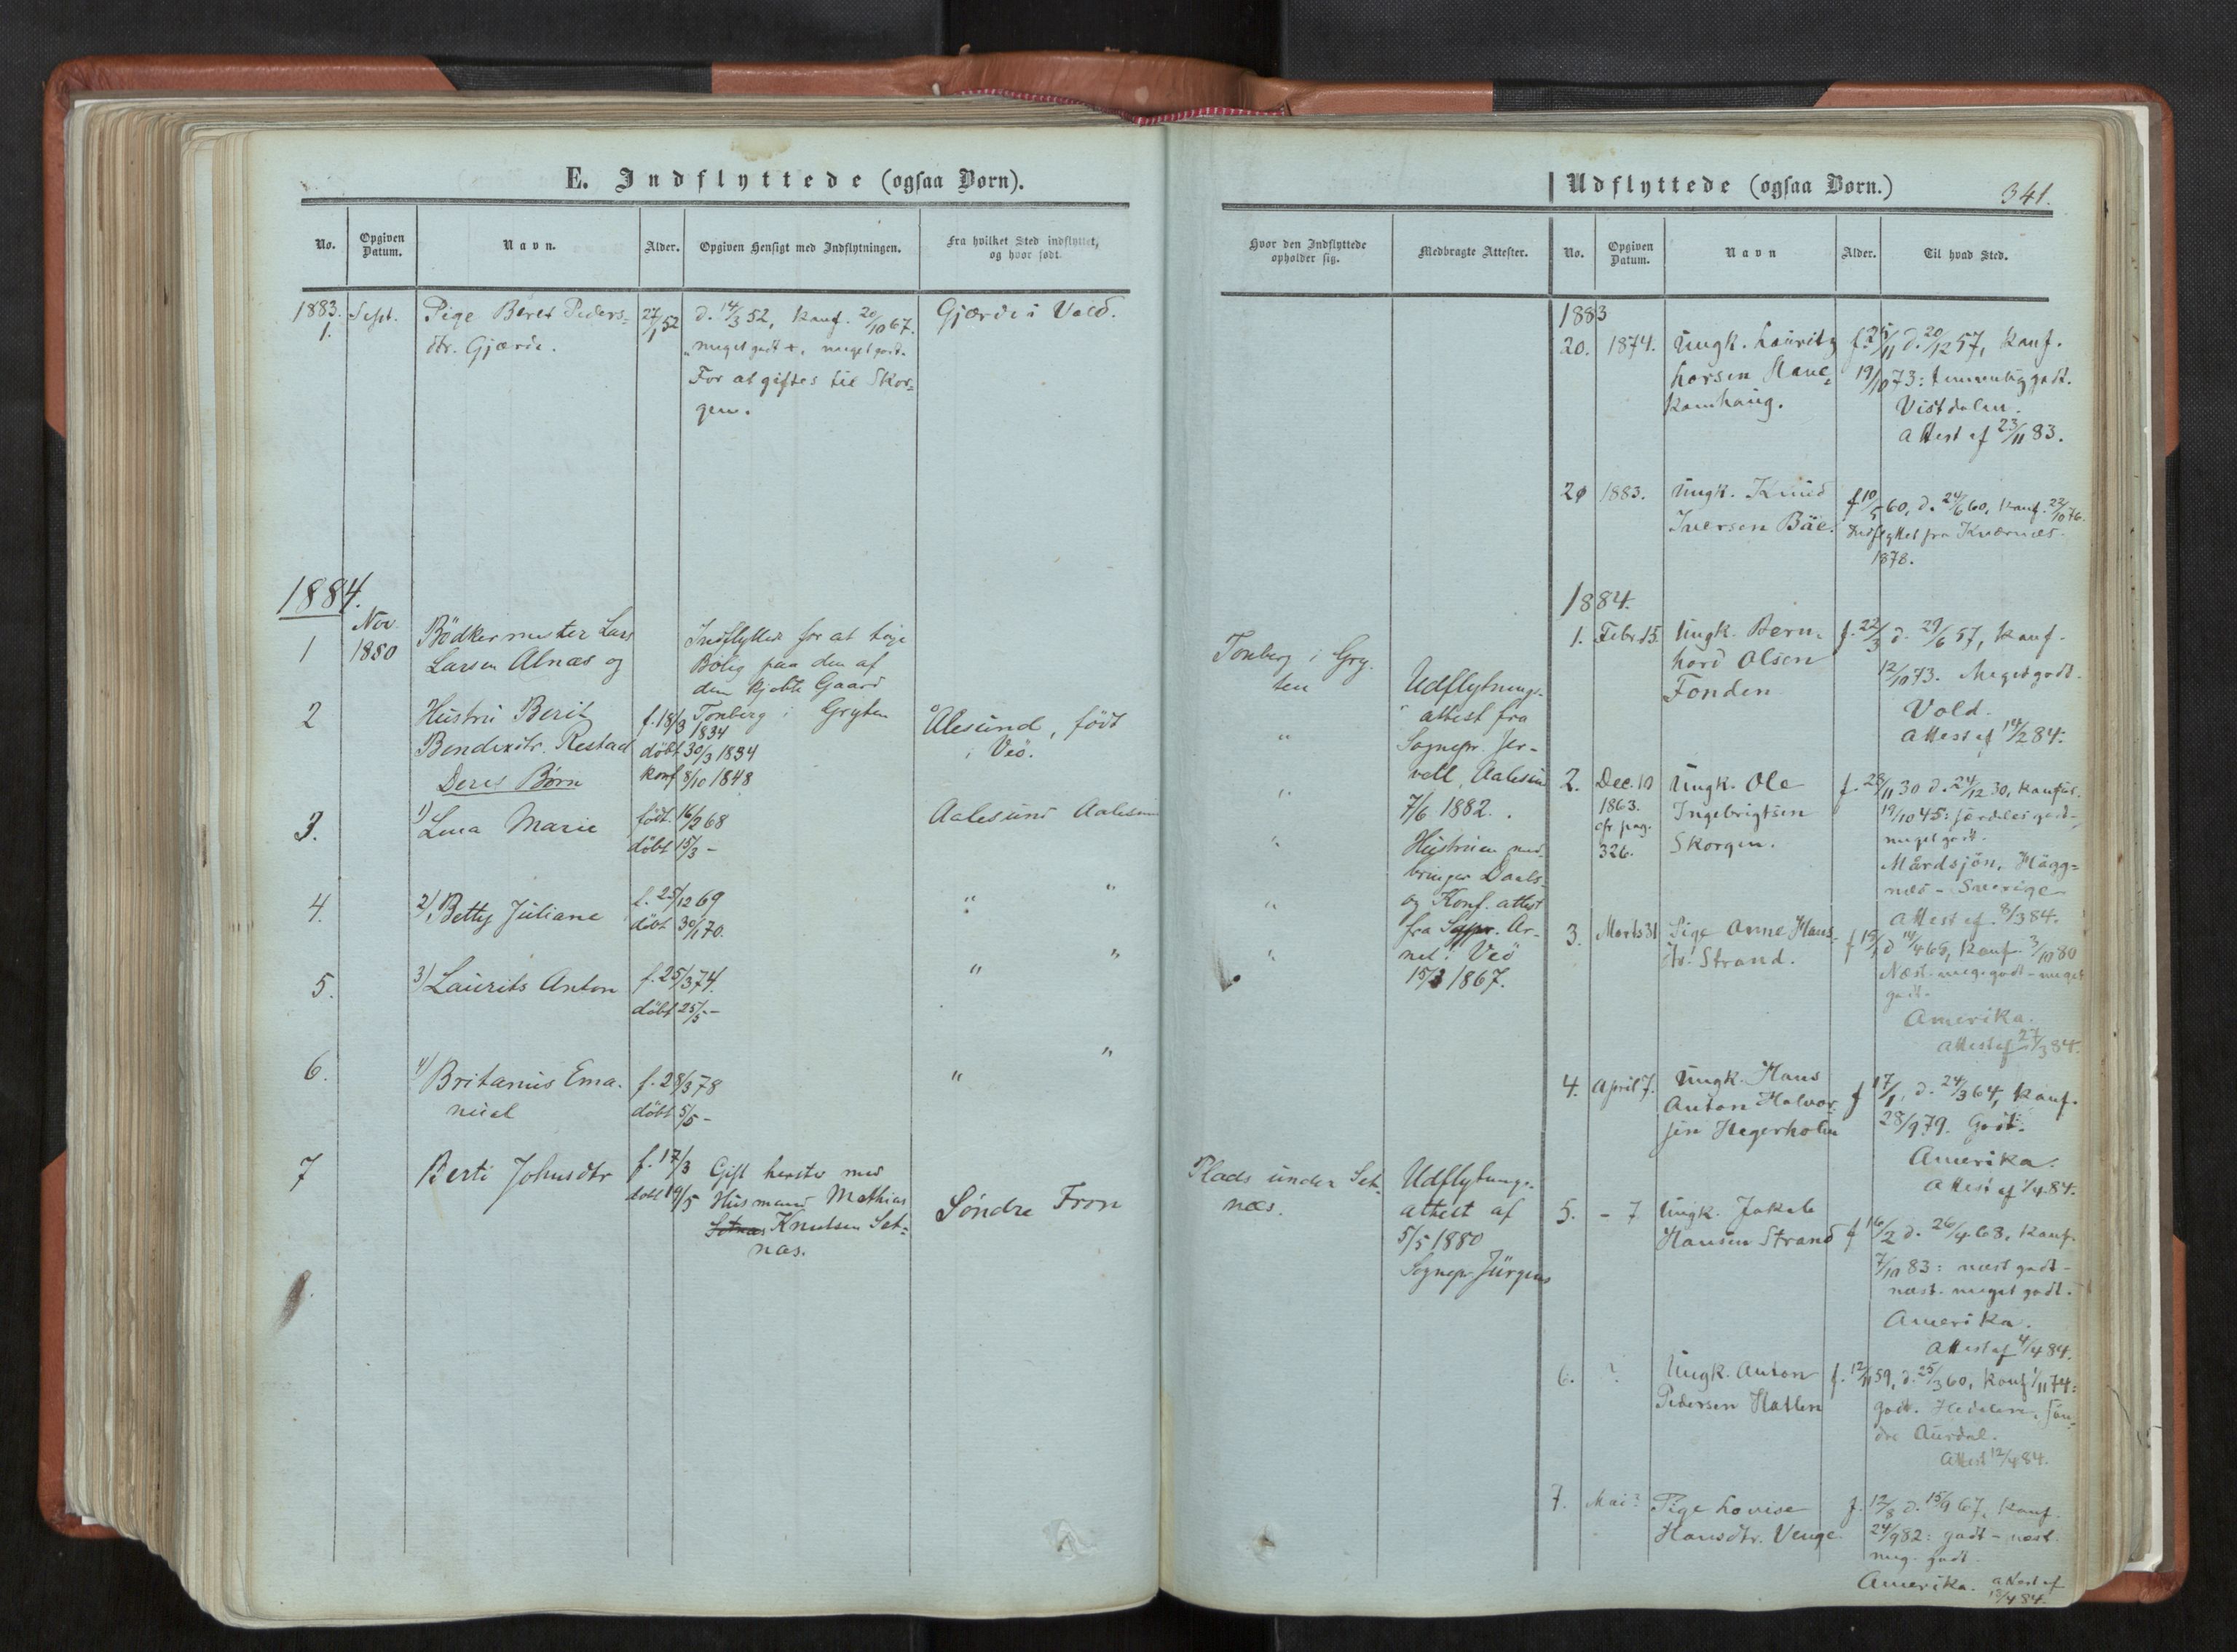 E. Indflyttede (ogsaa Børn).
No.
Opgiven Datum.
Navn.
Alder.
Opgiven Hensigt med Indflytningen.
Fra hvilket Sted indflyttet, og hvor født.
1883.
1.
Sept.
Pige Beret Peders-
dtr. Gjærde.
27/1 52
d. 14/3 52, Konf. 20/10 67.
meget godt +, meget godt.
For at giftes til Skor-
gen.
Gjærde i Vold.
1884.
1
Nov.
1880
Bödkermester Lars
Larsen Alnæs og
Indflyttede for at tage
Bolig paa den af
dem kjøbte Gaard
Tonberg i Gryten
2
Hustru Berit
Bendixdtr. Restad
f. 18/3 1834
döbt 30/3 1834
Konf 8/10 1848
Ålesund, född
i Veö.
Deres Børn
3.
1) Lina Marie
född. 16/2 68
döbt 15/3 -
Aalesund Aalesund
4.
2) Betty Juliane
f. 25/12 69
döbt 30/1 70.
" "
5.
3) Laurits Anton
f. 25/3 74.
döbt 25/5 -
" "
6.
4) Britanius Ema-
nuel
f. 28/3 78
döbt 5/5 -
" "
7
Berte Johnsdtr
f. 17/3
döbt 19/5
Gift herster med
Husmand Mathias
Setnæs Knudsen Set-
næs.
Söndre Fron
Udflyttede (ogsaa Børn.)
341.
Hvor den Indflyttede opholder sig.
Medbragte Attester.
No.
Opgiven Datum.
Navn
Alder.
Til hvad Sted.
Tonberg i Gry-
ten
"
"
"
"
"
Udflytnings-
attest fra
Sognepr. Jer-
vell, Aalesund
7/6 1882.
Hustruen med-
bringer Daabs-
og Konf. attest
fra Sogpr. Ar-
net: Veö
15/3 1867.
Plads under Set-
næs.
Udflytnings-
attest af
5/5 1880
Sognepr. Jürgens
1883
20.
1874.
Ungk. Lauritz
Larsen Hane-
kamhaug.
f. 25/11 d. 20/12 57, Konf.
19/10 73: temmelig godt.
Vistdalen.
Attest af 23/11 83.
20
1883.
Ungk. Knud
Iversen Bäe.
f. 10/5 60, d. 24/6 60, Konf. 22/10 76.
Indflyttet fra Kværnæs
1878.
1884.
1.
Febr. 15.
Ungk. Bern-
hard Olsen
Fonden
f. 22/3 d. 29/6 57, Konf.
12/10 73. Meget godt.
Vold.
Attest af 14/2 84.
2.
Dec. 10
1863.
cfr pag.
326.
Ungk. Ole
Ingebrigtsen
Skorgen.
f. 28/11 30 d. 24/12 30, Konf.
19/10 45: særdeles godt -
meget godt.
Mårdsjön, Hägg-
näs - Sverige
Attest af 8/3 84.
3.
Marts 31
Pige Anne Hans-
dtr. Strand.
f 15/1 d 14/4 65, Konf. 3/10 80
Næst. meg. godt - meget
godt.
Amerika.
Attest af 27/3 84.
4.
April 7.
Ungk. Hans
Anton Halvor-
sen Hegerholm
f 17/1, d. 24/3 64, Konf.
28/9 79. Godt.
Amerika.
Attest af 1/4 84.
5.
- 7
Ungk. Jakob
Hansen Strand
f 16/2 d. 26/4 68, Konf.
7/10 83: næst godt -
næst. meget godt.
Amerika.
Attest af 4/4 84.
6.
?
Ungk. Anton
Pedersen Hatlen
f. 12/11 59, d. 25/3 60, Konf 1/11 74:
godt. Hedalen, Søn-
dre Aurdal.
Attest 12/4 84.
7.
Mai?
Pige Lovise
Hansdtr. Venge.
f. 12/8 d. 15/9 67, Konf.
24/9 82: godt - næst
meg. godt.
Amerika. Attest af
15/4 84.